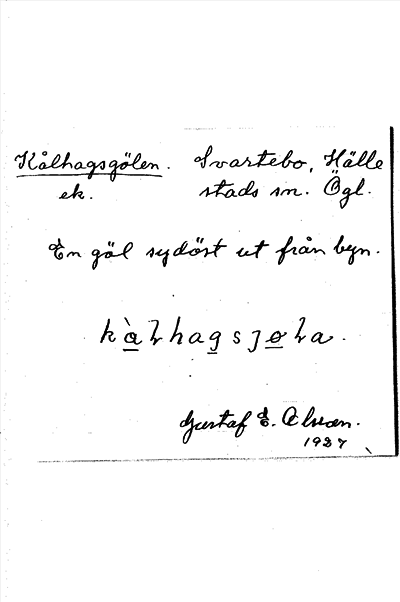 Kålhagsgölen. Svartebo, Hälle
ek. stads sn. Ögl.
En göl sydöst ut från byn.
Gustaf E. Alvan.
1927